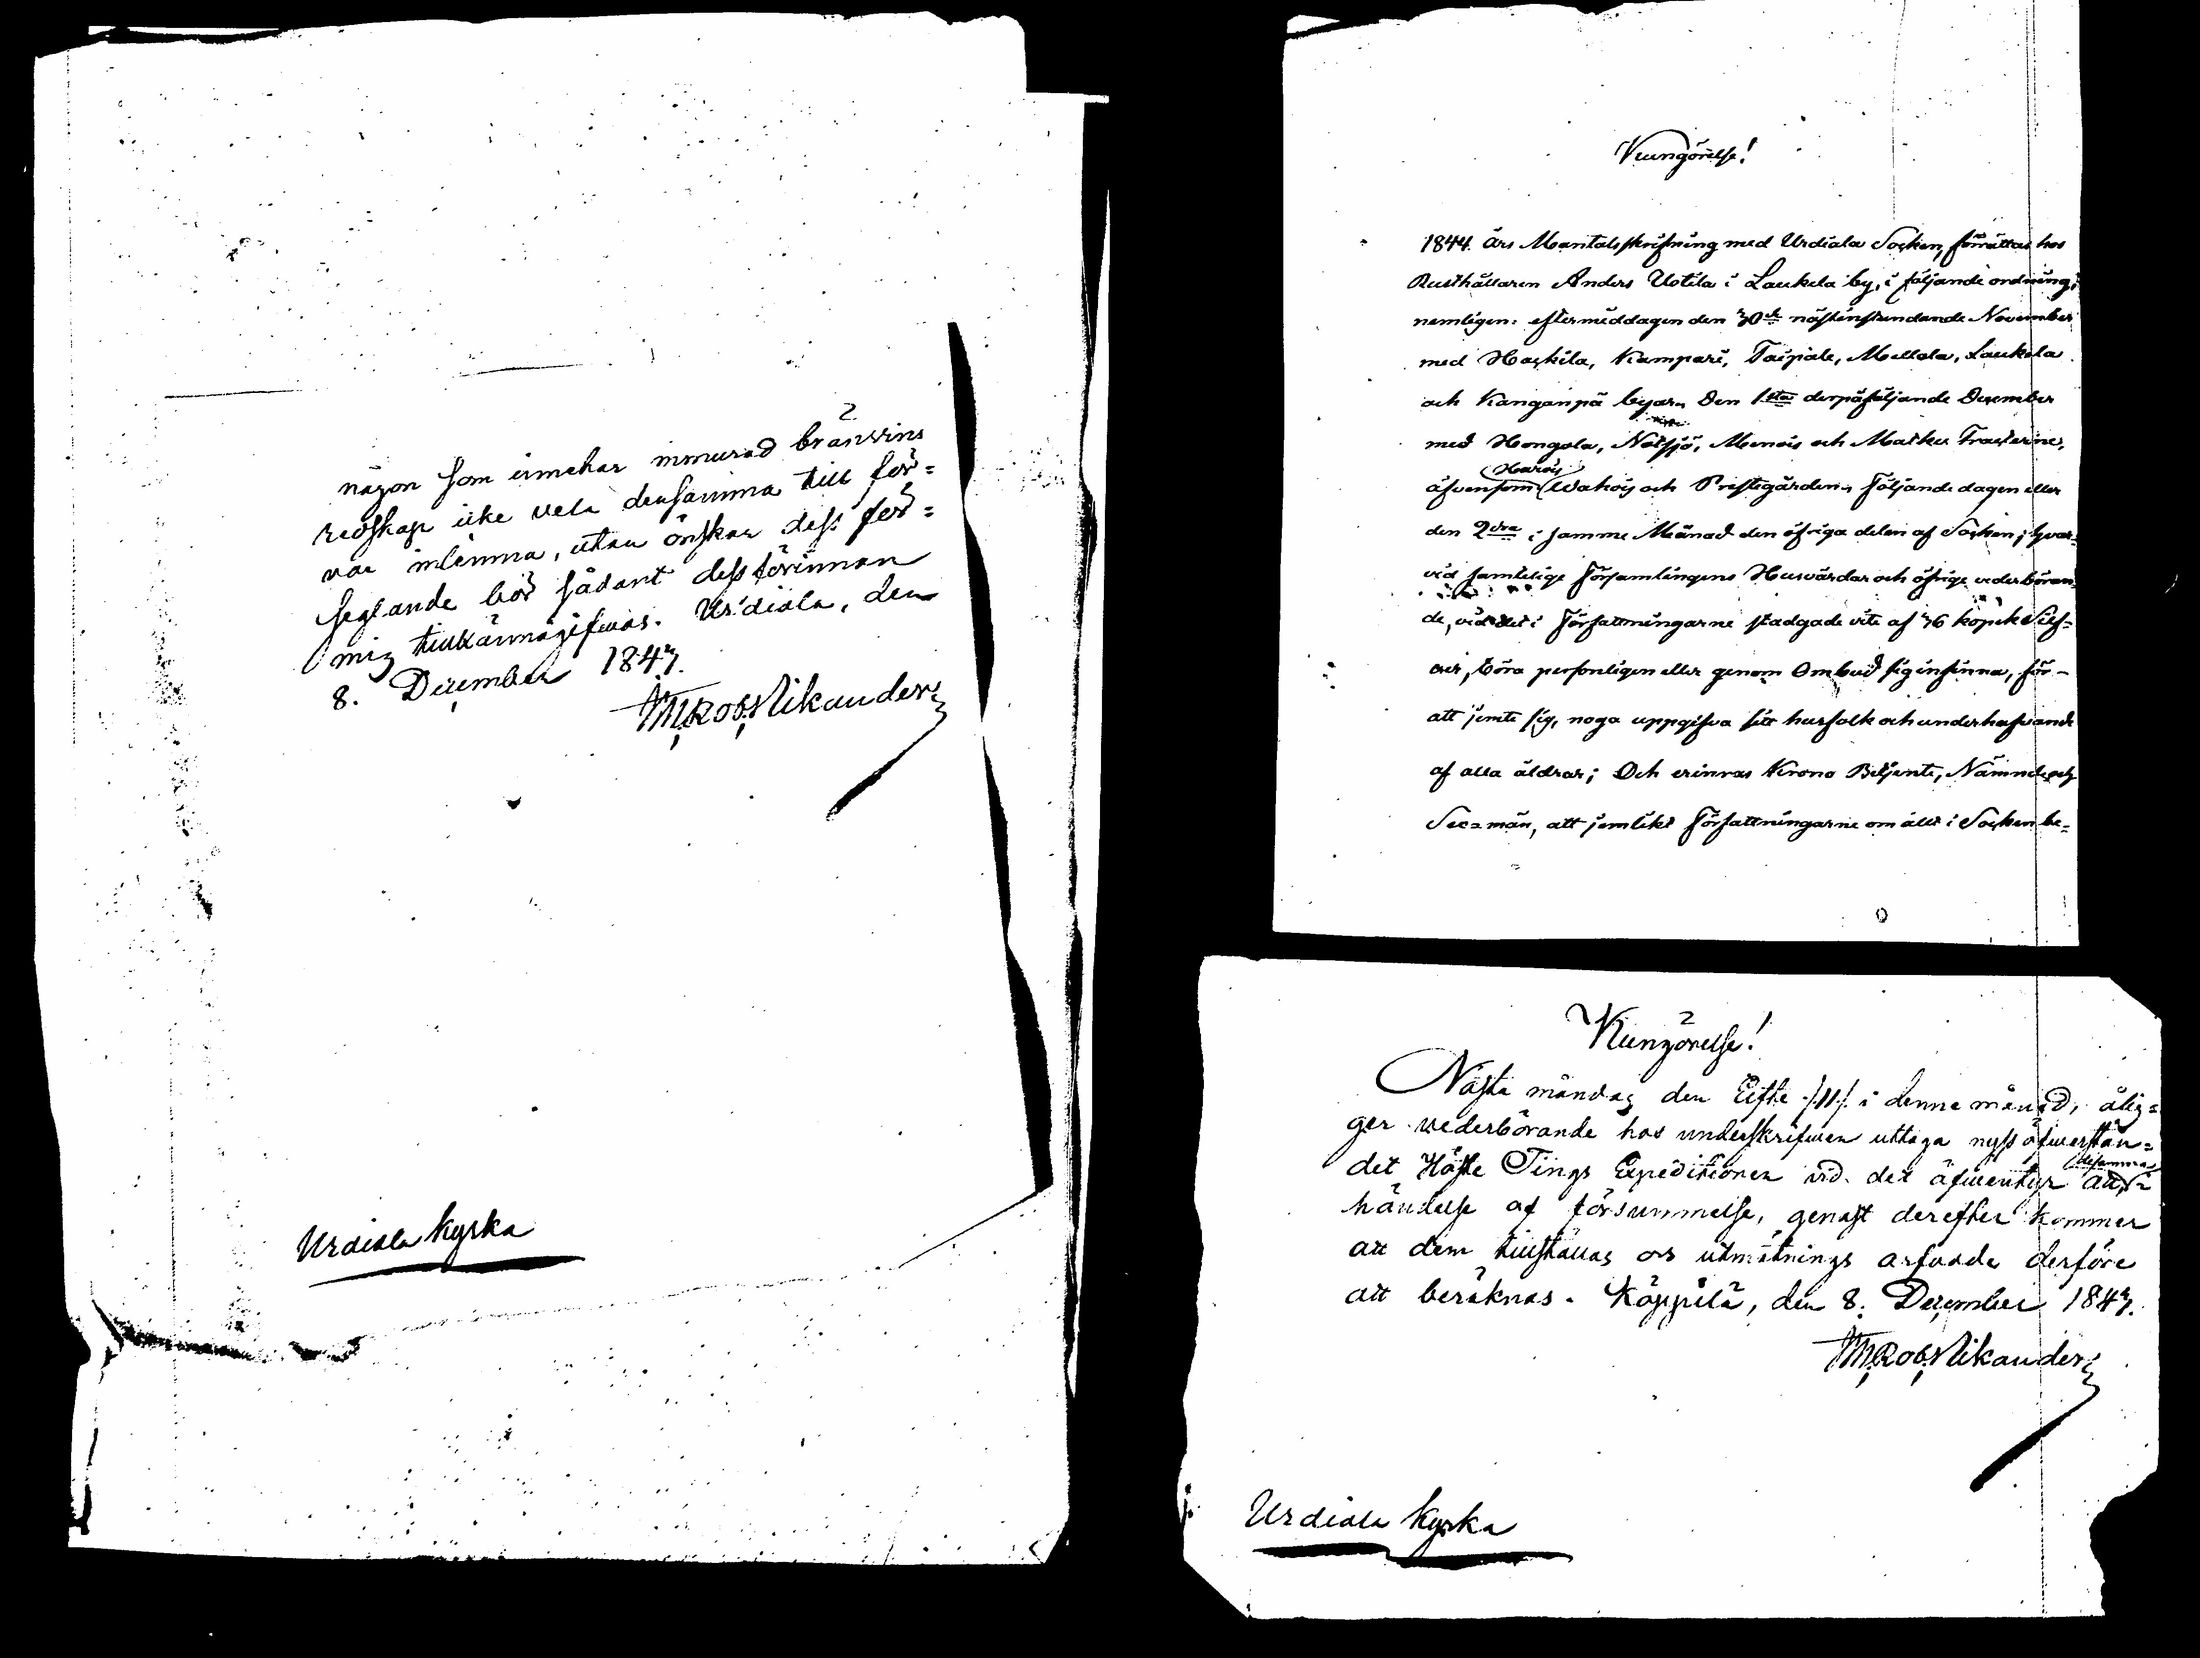 någon som innehar inmurad bränvins
redskap icke vela densamma till för=
var inlemna, utan önskar dess för=
seglande bör sådant dessförinnan
mig tillkännagifwas. Urdiala, den
8. December 1843.
Nikander
Urdiala kyrka
Kungörelse!
1844 års Mantalsskrifning med Urdiala Socken, förrättas hos
Rusthållaren Anders Uotila i Laukela by, i följande ordning,
nemligen: eftermiddagen den 30de nästinstundande November
med Haskila, Kampari, Taipale, Mellola, Laukela
och Kanganpä byar. Den 1sta derpåföljande December
med Hongola, Notsjö, Menois och Matku Fracterne,
Harois
äfvensom Wahois och Prestegården. Följande dagen eller
den 2dra i samme Månad den öfriga delen af Socken; hvar=
vid samtelige Församlingens Husvärdar och öfrige vederböran
de, vid det i Författningarne stadgade vite af 36 kopek Silf=
ver, böra personligen eller genom Ombud sig infinna, för
att jemte sig, noga uppgifva sitt husfolk och underhafvande
af alla åldrar; Och erinras Krono Betjente, Nämnde och
Sexmän, att jemlikt Författningarne om allt i Socken be=
Kungörelse!
Nästa måndag den Elfte /:11:/ i denne månad, ålig=
ger vederbörande hos underskrifwen uttaga nyss öfwerstån=
desamma
det Höste Tings Expeditioner vid det äfwentyr att i
händelse af försummelse, genast derefter kommer
att dem tillställas och utmätnings arfvode derföre
att beräknas. Käppilä, den 8. December 1843.
Nikander
Urdiala kyrka